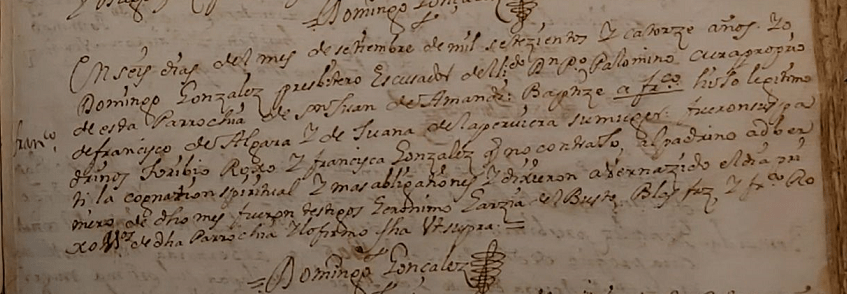 Domingo Gonçalez
En seis dias del mes de setiembre de mil setezientos Y catorze años. Yo
Domingo Gonzalez presbitero Escusador del Ldo Dn po Palomino cura proprio
de esta Parrochia de Sn Juan de Amandi: Baptize a frco hijo legitimo
de francisco de Alpara Y de Juana de la peruiera su muger: fueron sus pa
franco
drinos toribio Roxo Y francisca Gonzalez q no contraxo, al padrino aduer
ti la copnation spiritual Y mas abligaziones Y dixeron aver nazido el dia pri
mero de dho mes fueron testigos Geronimo Garzia del Busto, Blas frz, Y frco Ro
xo Vos de dha Parrochia Y lo firmo fha Vt supra =
Domingo Gonçalez